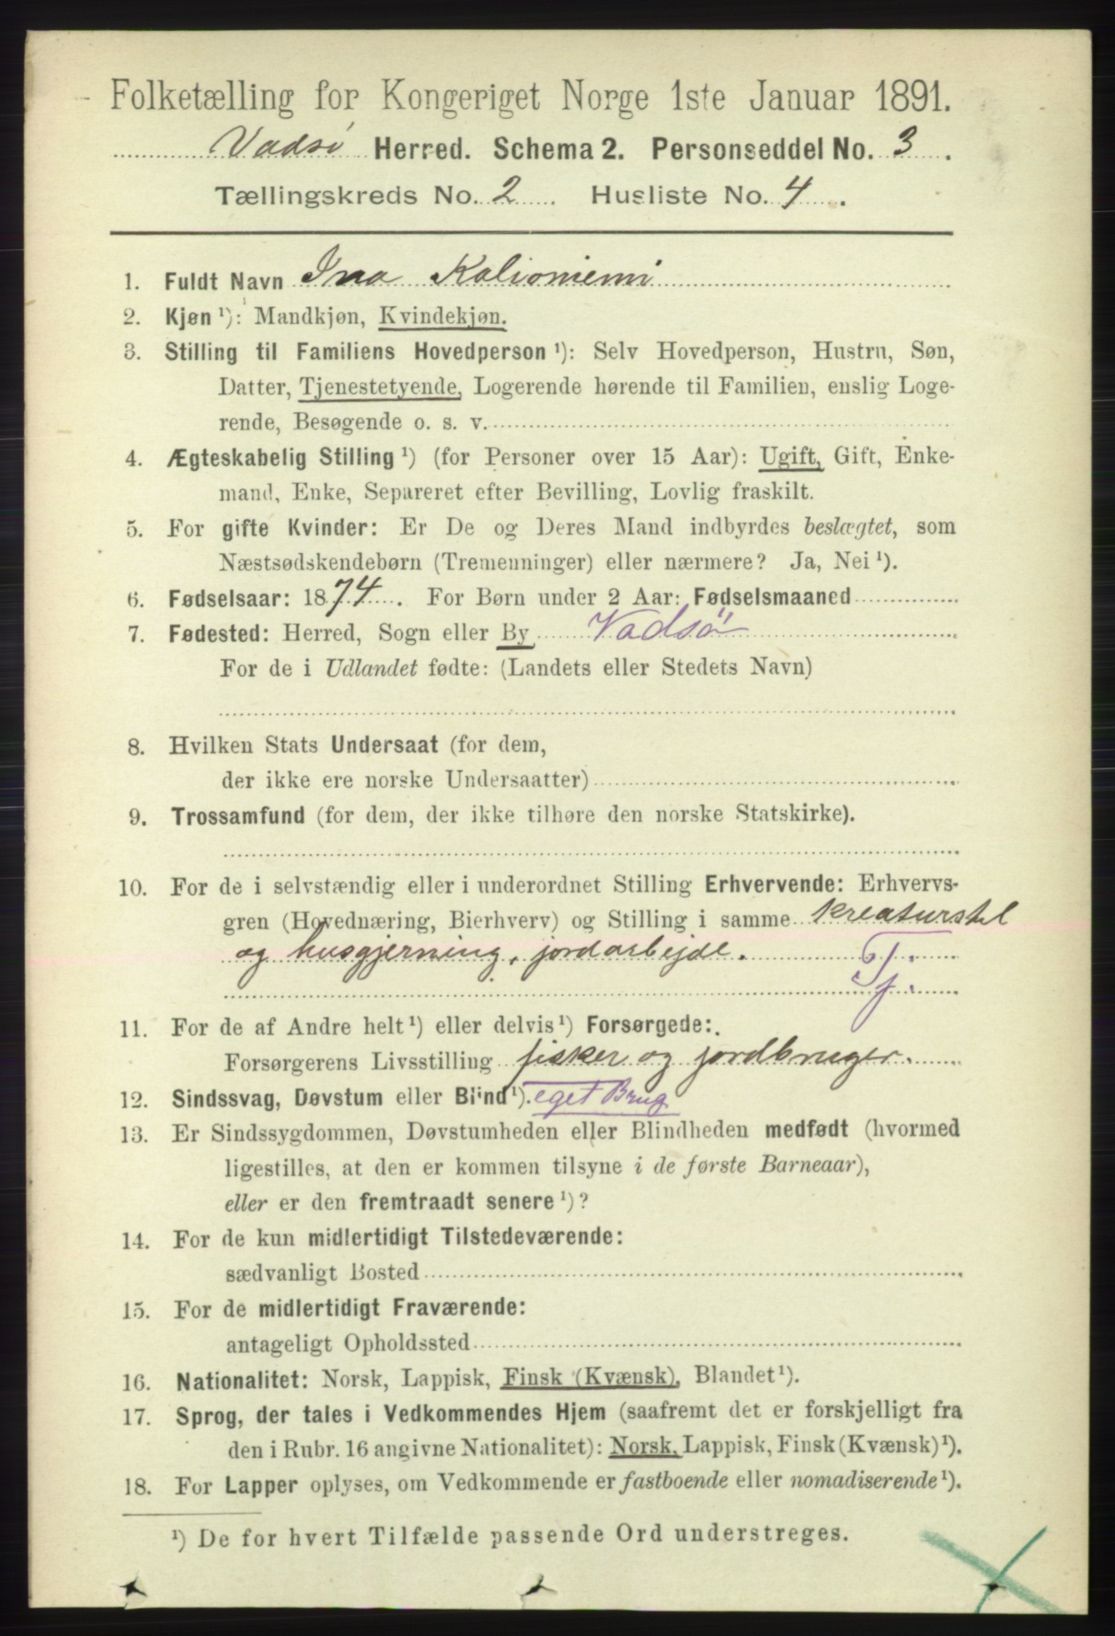 Folketælling for Kongeriget Norge 1ste Januar 1891.
Vadsö Herred. Schema 2. Personseddel No. 3.
Tællingskreds No. 2 Husliste No. 4.
1. Fuldt Navn Ina Kalioniemi
2. Kjøn ¹): Mandkjøn, Kvindekjøn.
3. Stilling til Familiens Hovedperson ¹): Selv Hovedperson, Hustru, Søn,
Datter, Tjenestetyende, Logerende hørende til Familien, enslig Loge-
rende, Besøgende o. s. v.
4. Ægteskabelig Stilling ¹) (for Personer over 15 Aar): Ugift, Gift, Enke-
mand, Enke, Separeret efter Bevilling, Lovlig fraskilt.
5. For gifte Kvinder: Er De og Deres Mand indbyrdes beslægtet, som
Næstsødskendebørn (Tremenninger) eller nærmere? Ja, Nei ¹).
6. Fødselsaar: 1874. For Børn under 2 Aar: Fødselsmaaned
7. Fødested: Herred, Sogn eller By Vadsö
For de i Udlandet fødte: (Landets eller Stedets Navn)
8. Hvilken Stats Undersaat (for dem,
der ikke ere norske Undersaatter)
9. Trossamfund (for dem, der ikke tilhøre den norske Statskirke).
10. For de i selvstændig eller i underordnet Stilling Erhvervende: Erhvervs-
gren (Hovednæring, Bierhverv) og Stilling i samme kreaturstel
og husgjerning, jordarbejde.
Tj.
11. For de af Andre helt ¹) eller delvis ¹) Forsørgede:
Forsørgerens Livsstilling fisker og jordbruger.
12. Sindssvag, Døvstum eller Blind ¹). eget Brug
13. Er Sindssygdommen, Døvstumheden eller Blindheden medfødt (hvormed
ligestilles, at den er kommen tilsyne i de første Barneaar),
eller er den fremtraadt senere ¹)?
14. For de kun midlertidigt Tilstedeværende:
sædvanligt Bosted
15. For de midlertidigt Fraværende:
antageligt Opholdssted
16. Nationalitet: Norsk, Lappisk, Finsk (Kvænsk), Blandet ¹).
17. Sprog, der tales i Vedkommendes Hjem (saafremt det er forskjelligt fra
den i Rubr. 16 angivne Nationalitet): Norsk, Lappisk, Finsk (Kvænsk) ¹).
18. For Lapper oplyses, om Vedkommende er fastboende eller nomadiserende ¹).
¹) De for hvert Tilfælde passende Ord understreges.